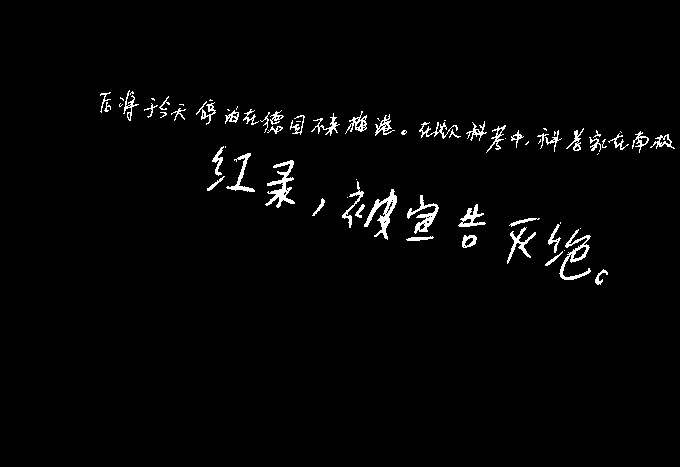 后将于今天停泊在德国不来梅港。在次科考中,科考家在南极
红录,被宣告灭绝。